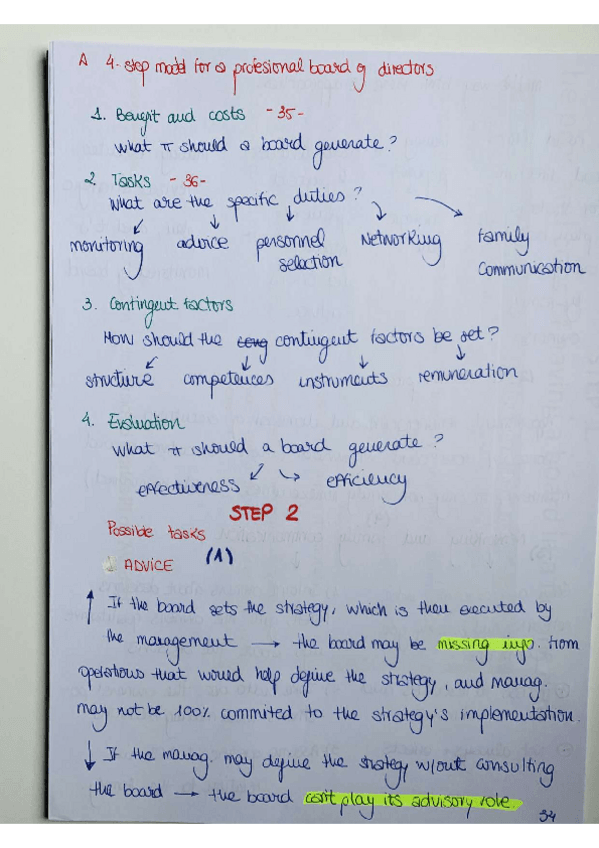 A 4-step model for a profesional board of directors
1. Benefit and costs -35-
What π should a board generate?
2. Tasks -36-
What are the specific duties?
monitoring advice personnel selection Networking Family Communication
3. Contingent factors
How should the contingent factors be set?
structure competences instruments remuneration
4. Evaluation
What π should a board generate?
effectiveness efficiency
STEP 2
Possible tasks
ADVICE (A)
↑ If the board sets the strategy, which is then executed by
the management → the board may be missing info. from
operations that would help define the strategy, and manag.
may not be 100% commited to the strategy's implementation.
↓ If the manag. may define the strategy w/out consulting
the board → the board can't play its advisory role.
34